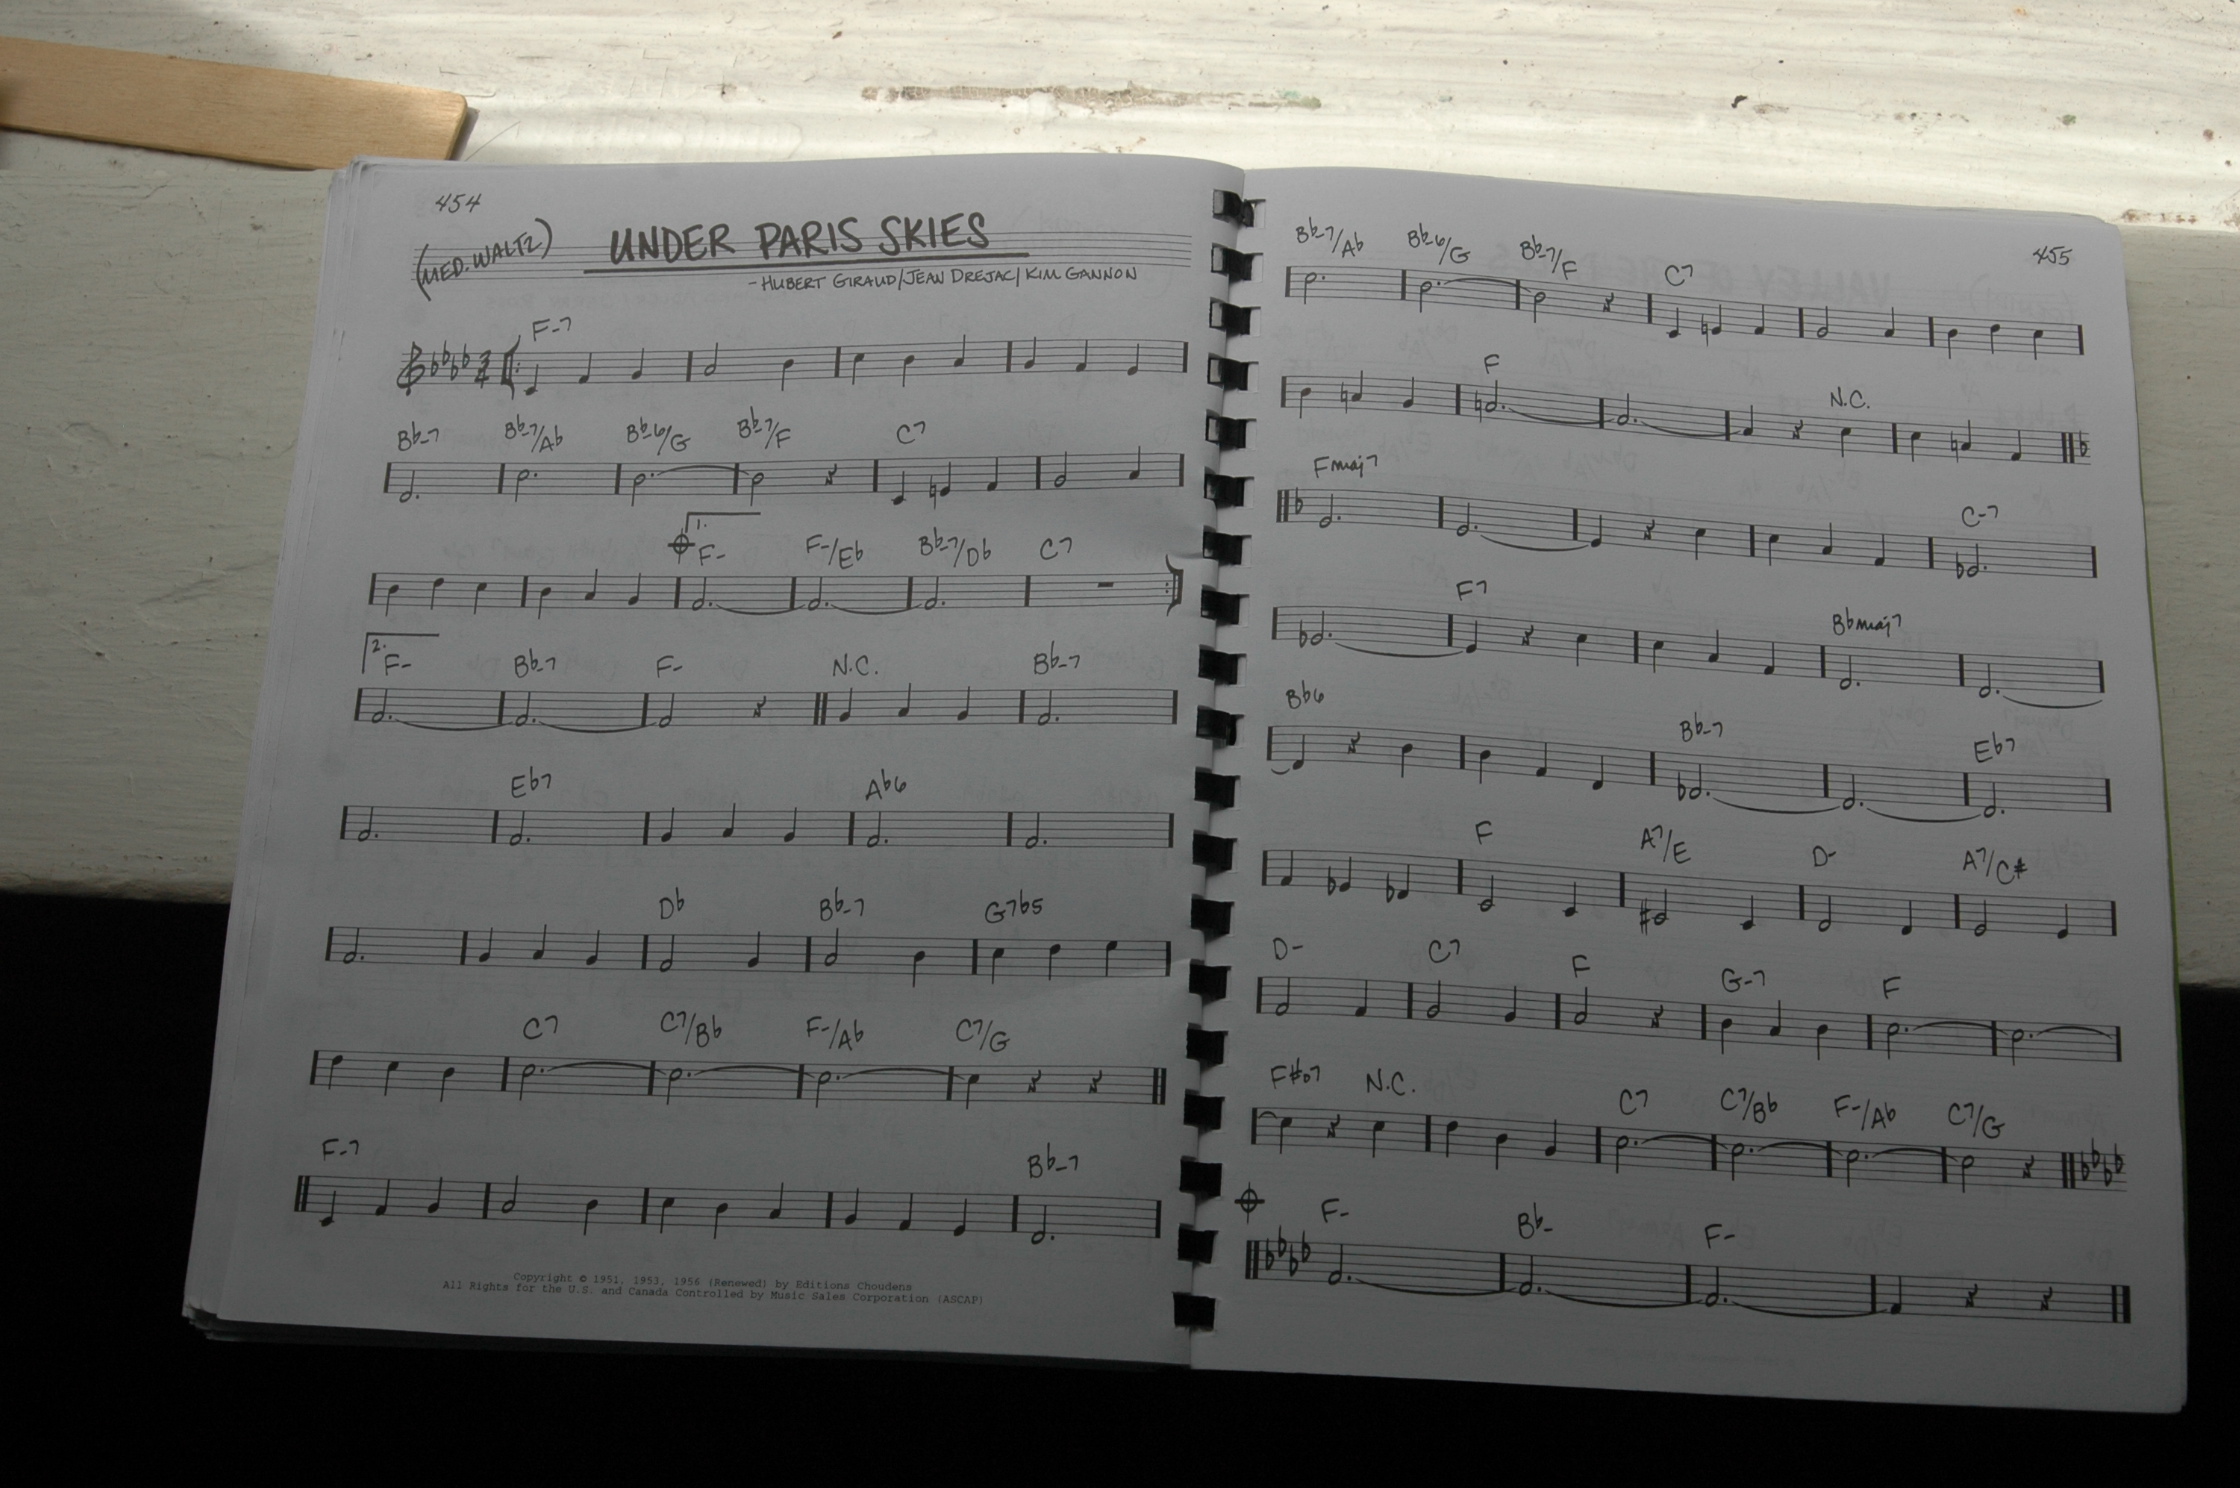 454
(MED. WALTZ) UNDER PARIS SKIES
- HUBERT GIRAUD/JEAN DREJAC/KIM GANNON
F-7
Bb-7 Bb-7/Ab Bb-6/G Bb-7/F C7
1. F- F-/Eb Bb-7/Db C7
2. F- Bb-7 F- N.C. Bb-7
Eb7 Ab6
Db Bb-7 G7b5
C7 C7/Bb F-/Ab C7/G
F-7 Bb-7
Copyright © 1951, 1953, 1956 (Renewed) by Editions Choudens
All Rights for the U.S. and Canada Controlled by Music Sales Corporation (ASCAP)
455
Bb-7/Ab Bb-6/G Bb-7/F C7
F N.C.
Fmaj7 C-7
F7 Bbmaj7
Bb6 Bb-7 Eb7
F A7/E D- A7/C#
D- C7 F G-7 F
F#o7 N.C. C7 C7/Bb F-/Ab C7/G
F- Bb- F-